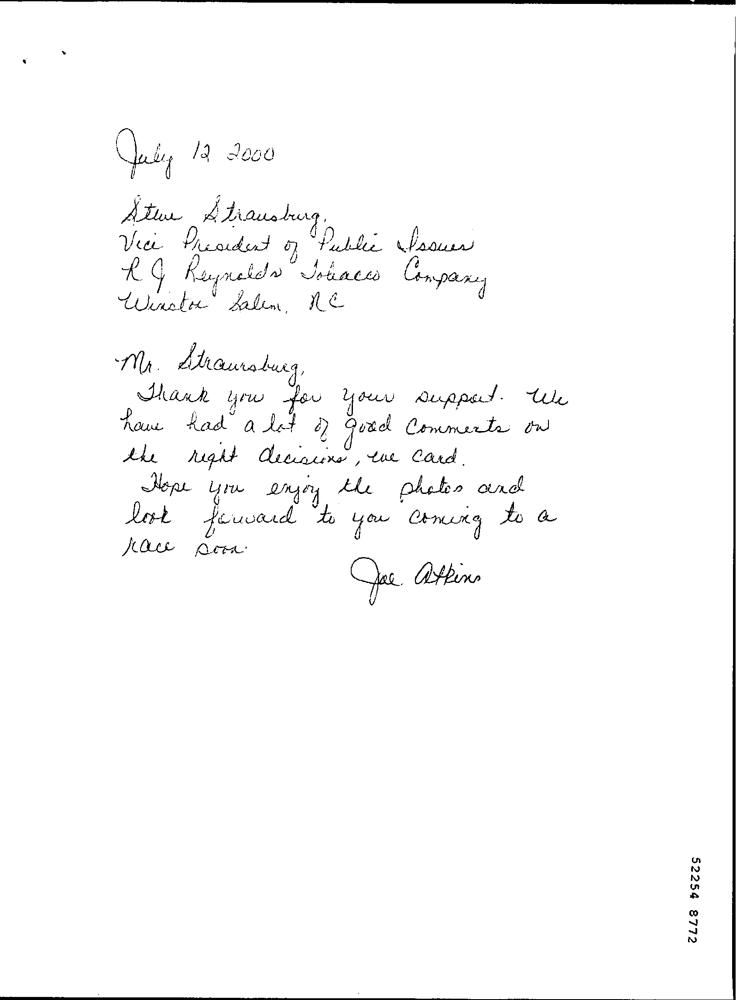 July 12 2000
Steve Strausburg,
Vice President of Public Issues
R J Reynolds Tobacco Company
Winston Salem, NC
Mr. Straursburg,
Thank you for your support. We
have had a lot of good comments on
the right decisions, we card.
Hope you enjoy the photos and
look forward to you coming to a
race soon.
Joe Atkins
52254 8772